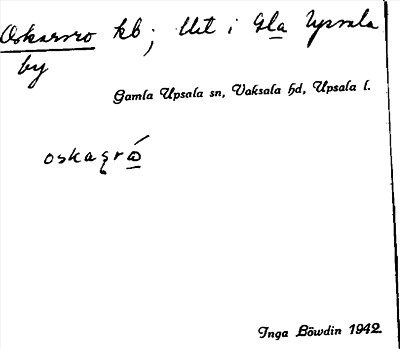 Oskarsro kb; Ut i Gla Upsala
by
Gamla Upsala sn, Vaksala hd, Upsala l.
Inga Löwdin 1942